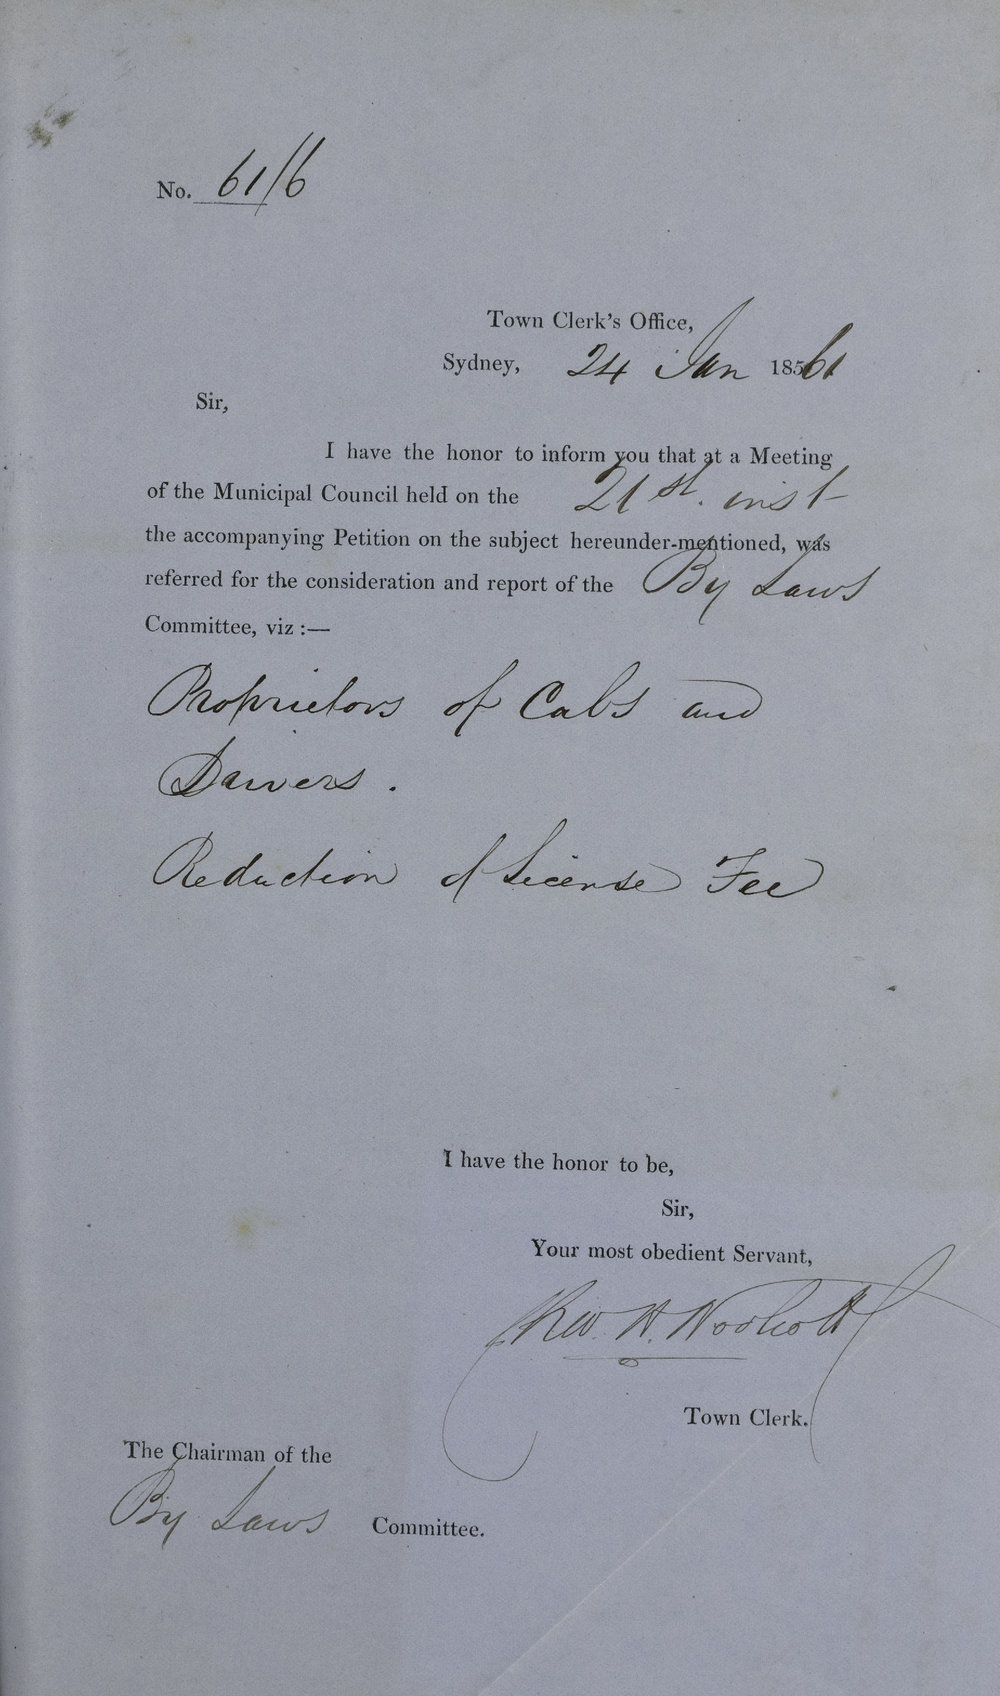 No. 61/6
Town Clerk's Office,
Sydney, 24 Jan 1861
Sir,
I have the honor to inform you that at a Meeting
of the Municipal Council held on the 21st. inst
the accompanying Petition on the subject hereunder-mentioned, was
referred for the consideration and report of the By Laws
Committee, viz :—
Proprietors of Cabs and
Drivers.
Reduction of License Fee
I have the honor to be,
Sir,
Your most obedient Servant,
Chas. H. Woolcott
Town Clerk.
The Chairman of the
By Laws Committee.